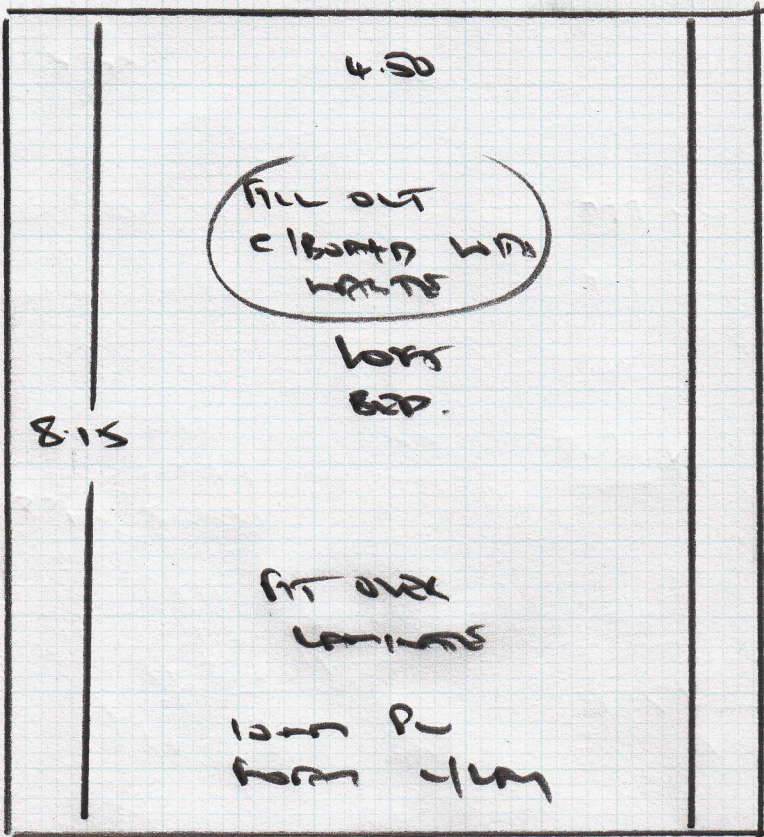 4.50
FILL OUT
C/BOARD WITH
WASTE
LOFT
BED.
8.15
FIT OVER
LAMINATE
10mm PU
FOAM U/LAY